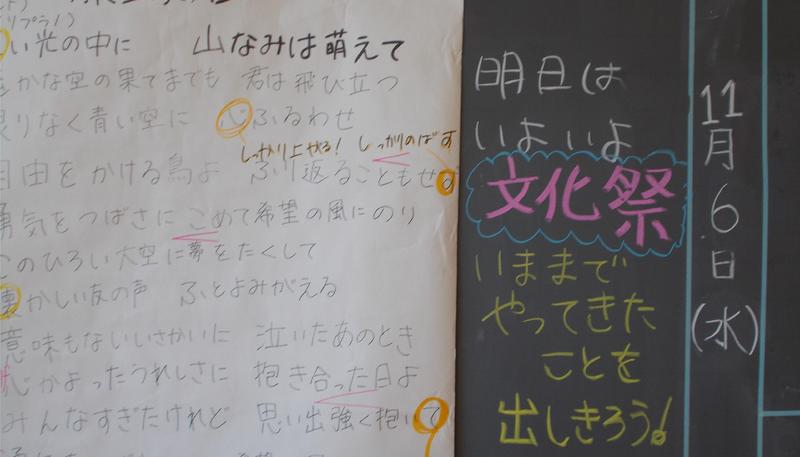 い光の中に　山なみは萌えて
かな空の果てまでも　君は飛び立つ
りなく青い空に　心ふるわせ
しっかり上やる！　しっかりのばす
自由をかける鳥よ　ふり返ることもせず
勇気をつばさにこめて希望の風にのり
このひろい大空に夢をたくして
懐かしい友の声　ふとよみがえる
意味もないいさかいに　泣いたあのとき
心かよったうれしさに　抱き合った日よ
みんなすぎたけれど　思い出強く抱いて
明日は
いよいよ
文化祭
いままで
やってきた
ことを
出しきろう！
11月6日(水)